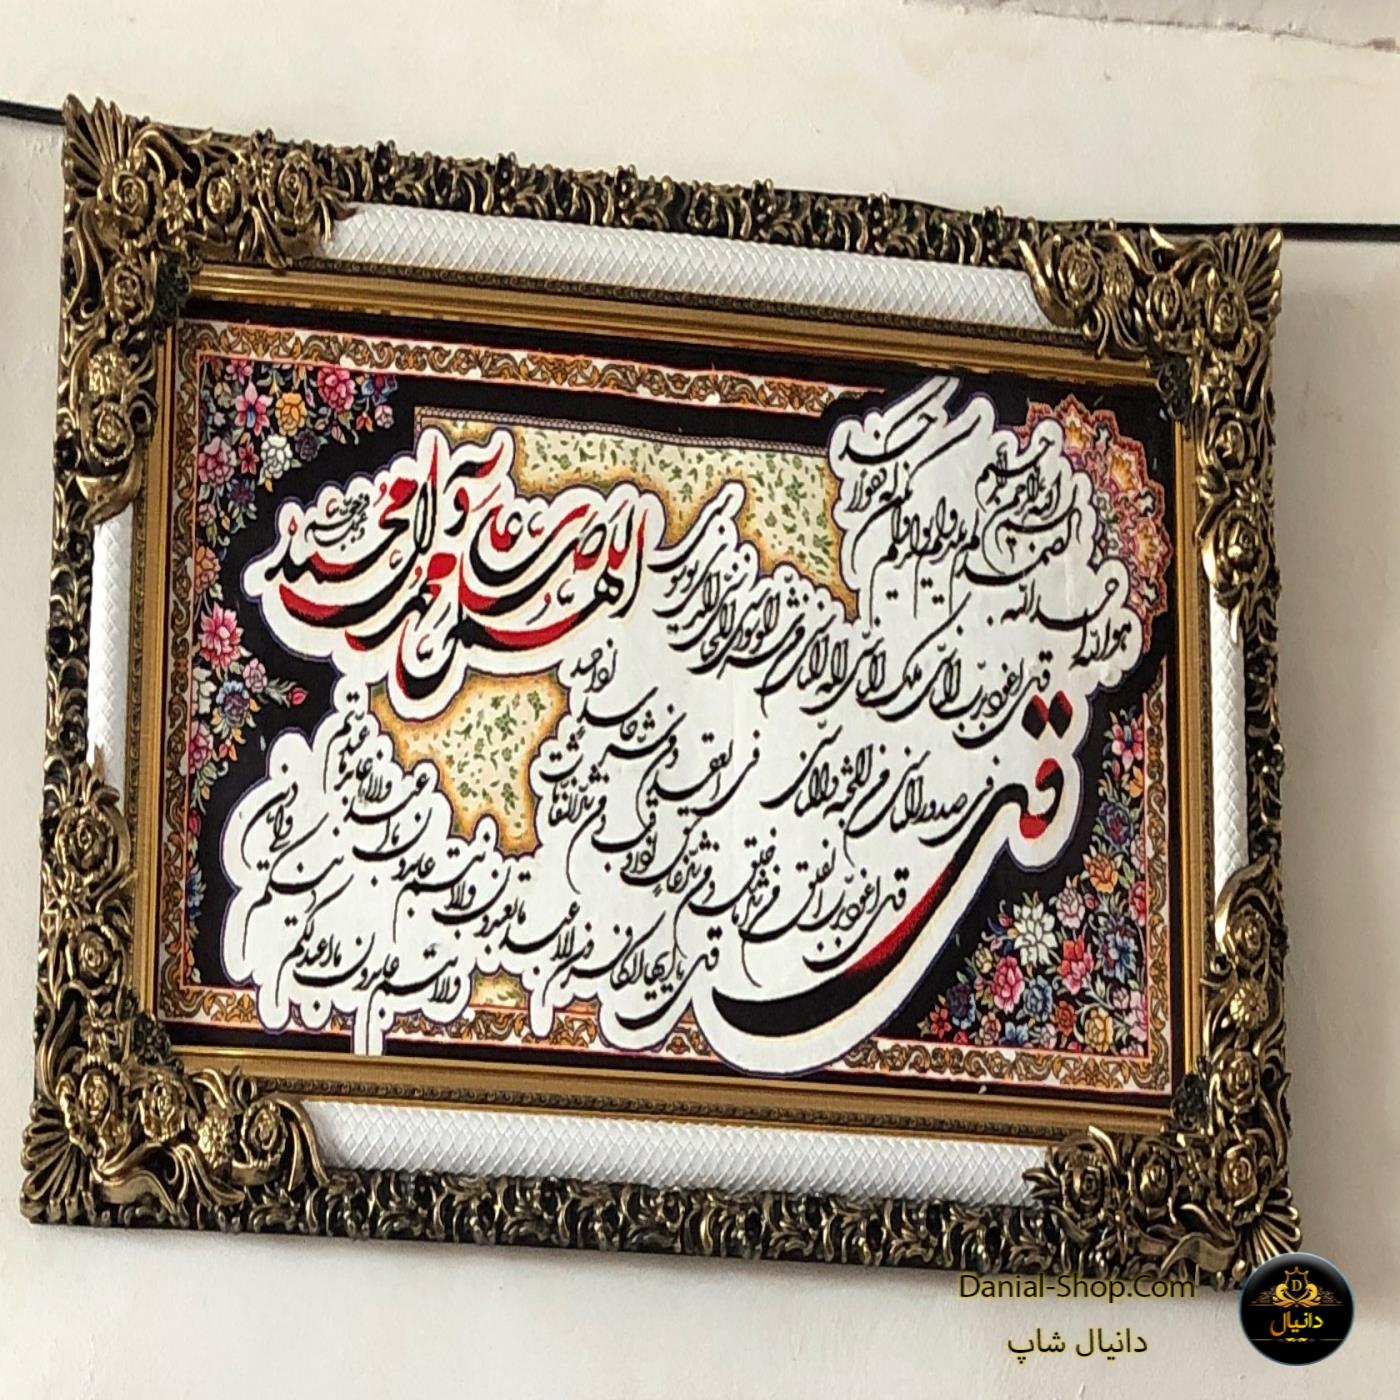 بسم الله الرحمن الرحیم
قل
هو الله احد الله
الصمد لم یلد ولم یولد ولم
یکن له کفوا احد
قل اعوذ برب الناس ملک الناس اله الناس من شر الوسواس الخناس الذی یوسوس
فی صدور الناس من الجنة و الناس
قل اعوذ برب الفلق من شر ما خلق و من شر غاسق اذا وقب و من شر النفاثات
فی العقد و من شر حاسد اذا حسد
قل یا ایها الکافرون لا اعبد ما تعبدون و لا انتم عابدون ما اعبد و لا انا عابد ما عبدتم
و لا انتم عابدون ما اعبد لکم
دینکم ولی دین
اللهم صل علی محمد و آل محمد
و عجل فرجهم
Danial-Shop.Com
دانیال شاپ
D
دانیال